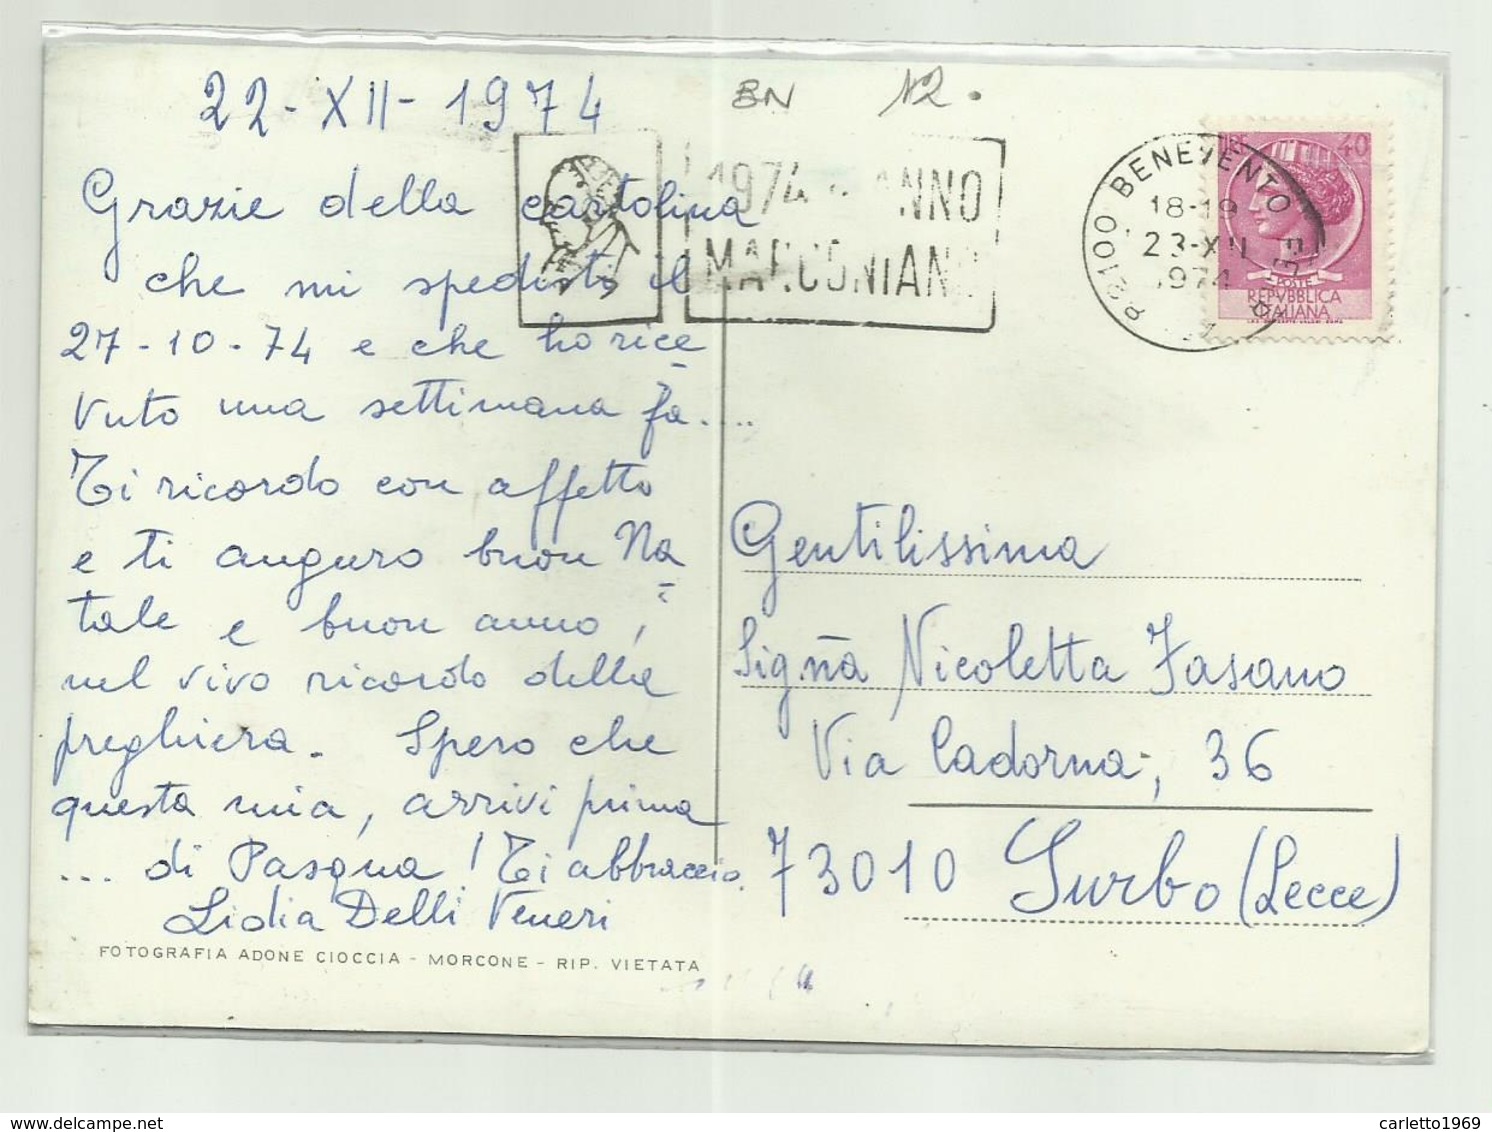 22-XII-1974
BN 12.
Grazie della cartolina
che mi spedisti il
27-10-74 e che ho rice
vuto una settimana fa....
Ti ricordo con affetto
e ti auguro buon Na
tale e buon anno,
nel vivo ricordo della
preghiera. Spero che
questa mia, arrivi prima
... di Pasqua! Ti abbraccio.
Lidia Delli Veneri
FOTOGRAFIA ADONE CIOCCIA - MORCONE - RIP. VIETATA
1974 - ANNO
MARCONIANO
82100 BENEVENTO
18-19
23-XII
1974
LIRE 40
POSTE
REPVBBLICA
ITALIANA
Gentilissima
Sig.na Nicoletta Fasano
Via Cadorna, 36
73010 Surbo (Lecce)
carletto1969